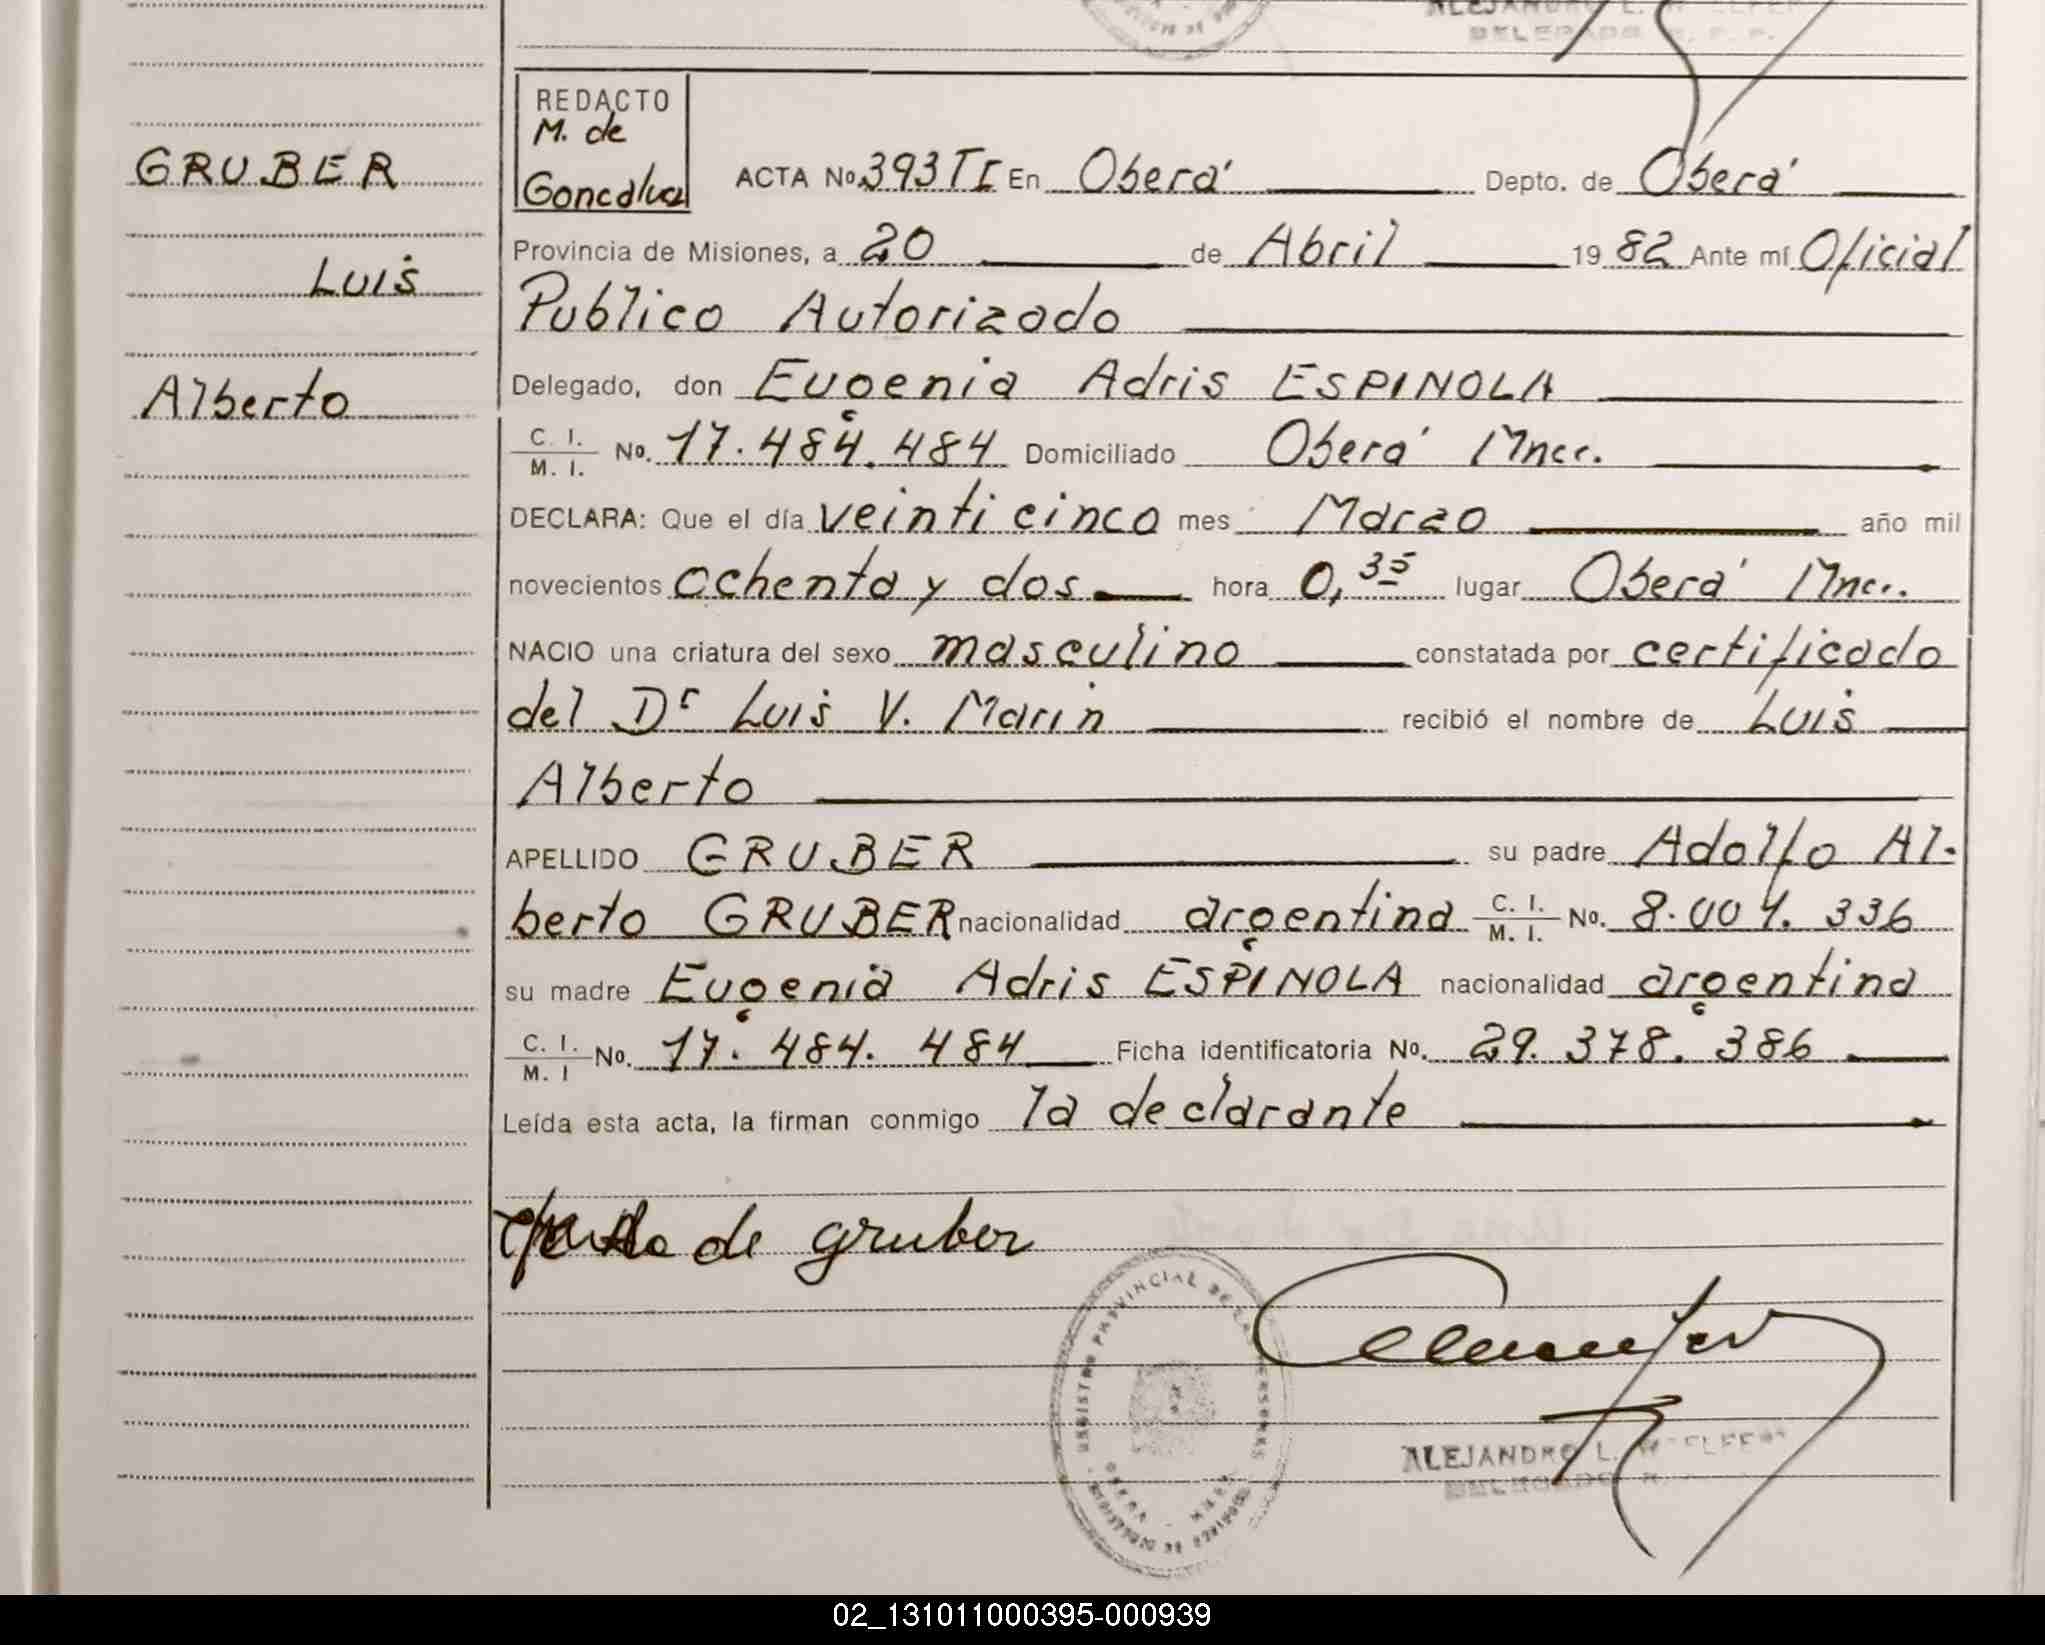 ALEJANDRO L.
REDACTO
M. de
Goncalvez
GRUBER
Luis
Alberto
ACTA No. 393 TI En Oberá Depto. de Oberá
Provincia de Misiones, a 20 de Abril 19 82 Ante mí Oficial
Publico Autorizado
Delegado, don Eugenia Adris ESPINOLA
C. I. / M. I. No. 17.484.484 Domiciliado Oberá Mnes.
DECLARA: Que el día veinticinco mes Marzo año mil
novecientos ochenta y dos hora 0,35 lugar Oberá Mnes.
NACIO una criatura del sexo masculino constatada por certificado
del Dr Luis V. Marin recibió el nombre de Luis
Alberto
APELLIDO GRUBER su padre Adolfo Al-
berto GRUBER nacionalidad argentina C. I. / M. I. No. 8.004.336
su madre Eugenia Adris ESPINOLA nacionalidad argentina
C. I. / M. I No. 17.484.484 Ficha identificatoria No. 29.378.386
Leída esta acta, la firman conmigo la declarante
de gruber
REGISTRO PROVINCIAL DE LAS PERSONAS
ALEJANDRO L.
02_131011000395-000939